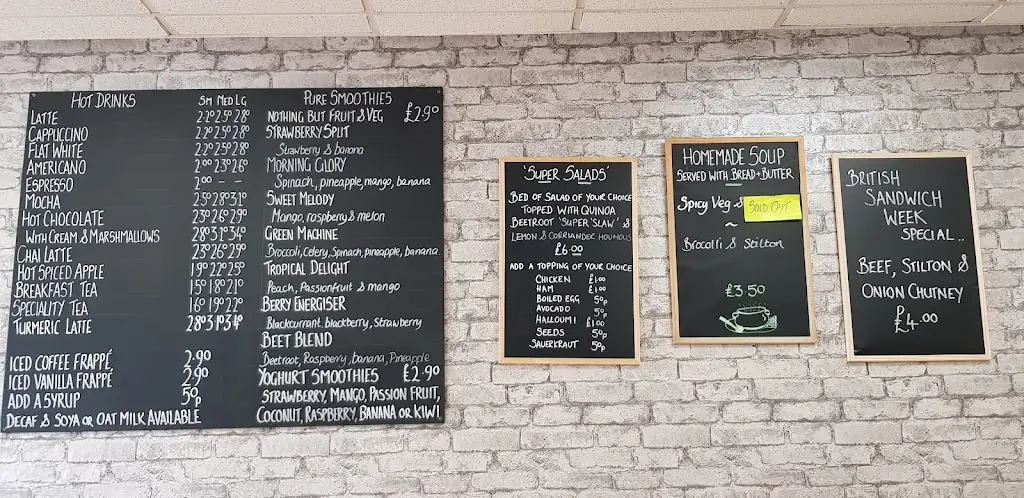 HOT DRINKS SM MED LG
LATTE 2²⁰ 2⁵⁰ 2⁸⁰
CAPPUCCINO 2²⁰ 2⁵⁰ 2⁸⁰
FLAT WHITE 2²⁰ 2⁵⁰ 2⁸⁰
AMERICANO 2⁰⁰ 2³⁰ 2⁶⁰
ESPRESSO 2⁰⁰ - -
MOCHA 2⁵⁰ 2⁸⁰ 3¹⁰
HOT CHOCOLATE 2³⁰ 2⁶⁰ 2⁹⁰
WITH CREAM & MARSHMALLOWS 2⁸⁰ 3¹⁰ 3⁴⁰
CHAI LATTE 2³⁰ 2⁶⁰ 2⁹⁰
HOT SPICED APPLE 1⁹⁰ 2²⁰ 2⁵⁰
BREAKFAST TEA 1⁵⁰ 1⁸⁰ 2¹⁰
SPECIALITY TEA 1⁶⁰ 1⁹⁰ 2²⁰
TURMERIC LATTE 2⁸⁰ 3¹⁰ 3⁴⁰
ICED COFFEE FRAPPÉ, 2.90
ICED VANILLA FRAPPÉ 2.90
ADD A SYRUP 50p
DECAF & SOYA OR OAT MILK AVAILABLE
PURE SMOOTHIES
NOTHING BUT FRUIT & VEG £2.90
STRAWBERRY SPLIT
Strawberry & banana
MORNING GLORY
Spinach, pineapple, mango, banana
SWEET MELODY
Mango, raspberry & melon
GREEN MACHINE
Broccoli, Celery, Spinach, pineapple, banana
TROPICAL DELIGHT
Peach, Passionfruit & mango
BERRY ENERGISER
Blackcurrant, blackberry, Strawberry
BEET BLEND
Beetroot, Raspberry, banana, Pineapple
YOGHURT SMOOTHIES £2.90
STRAWBERRY, MANGO, PASSION FRUIT,
COCONUT, RASPBERRY, BANANA OR KIWI
'SUPER SALADS'
BED OF SALAD OF YOUR CHOICE
TOPPED WITH QUINOA
BEETROOT 'SUPER 'SLAW' &
LEMON & CORRIANDEC HOUMOUS
£6.00
ADD A TOPPING OF YOUR CHOICE
CHICKEN £1.00
HAM £1.00
BOILED EGG 50p
AVOCADO 50p
HALLOUMI £1.00
SEEDS 50p
SAUERKRAUT 50p
HOMEMADE SOUP
SERVED WITH BREAD + BUTTER
Spicy Veg & SOLD OUT
~
Brocolli & Stilton
£3.50
BRITISH
SANDWICH
WEEK
SPECIAL..
BEEF, STILTON &
ONION CHUTNEY
£4.00